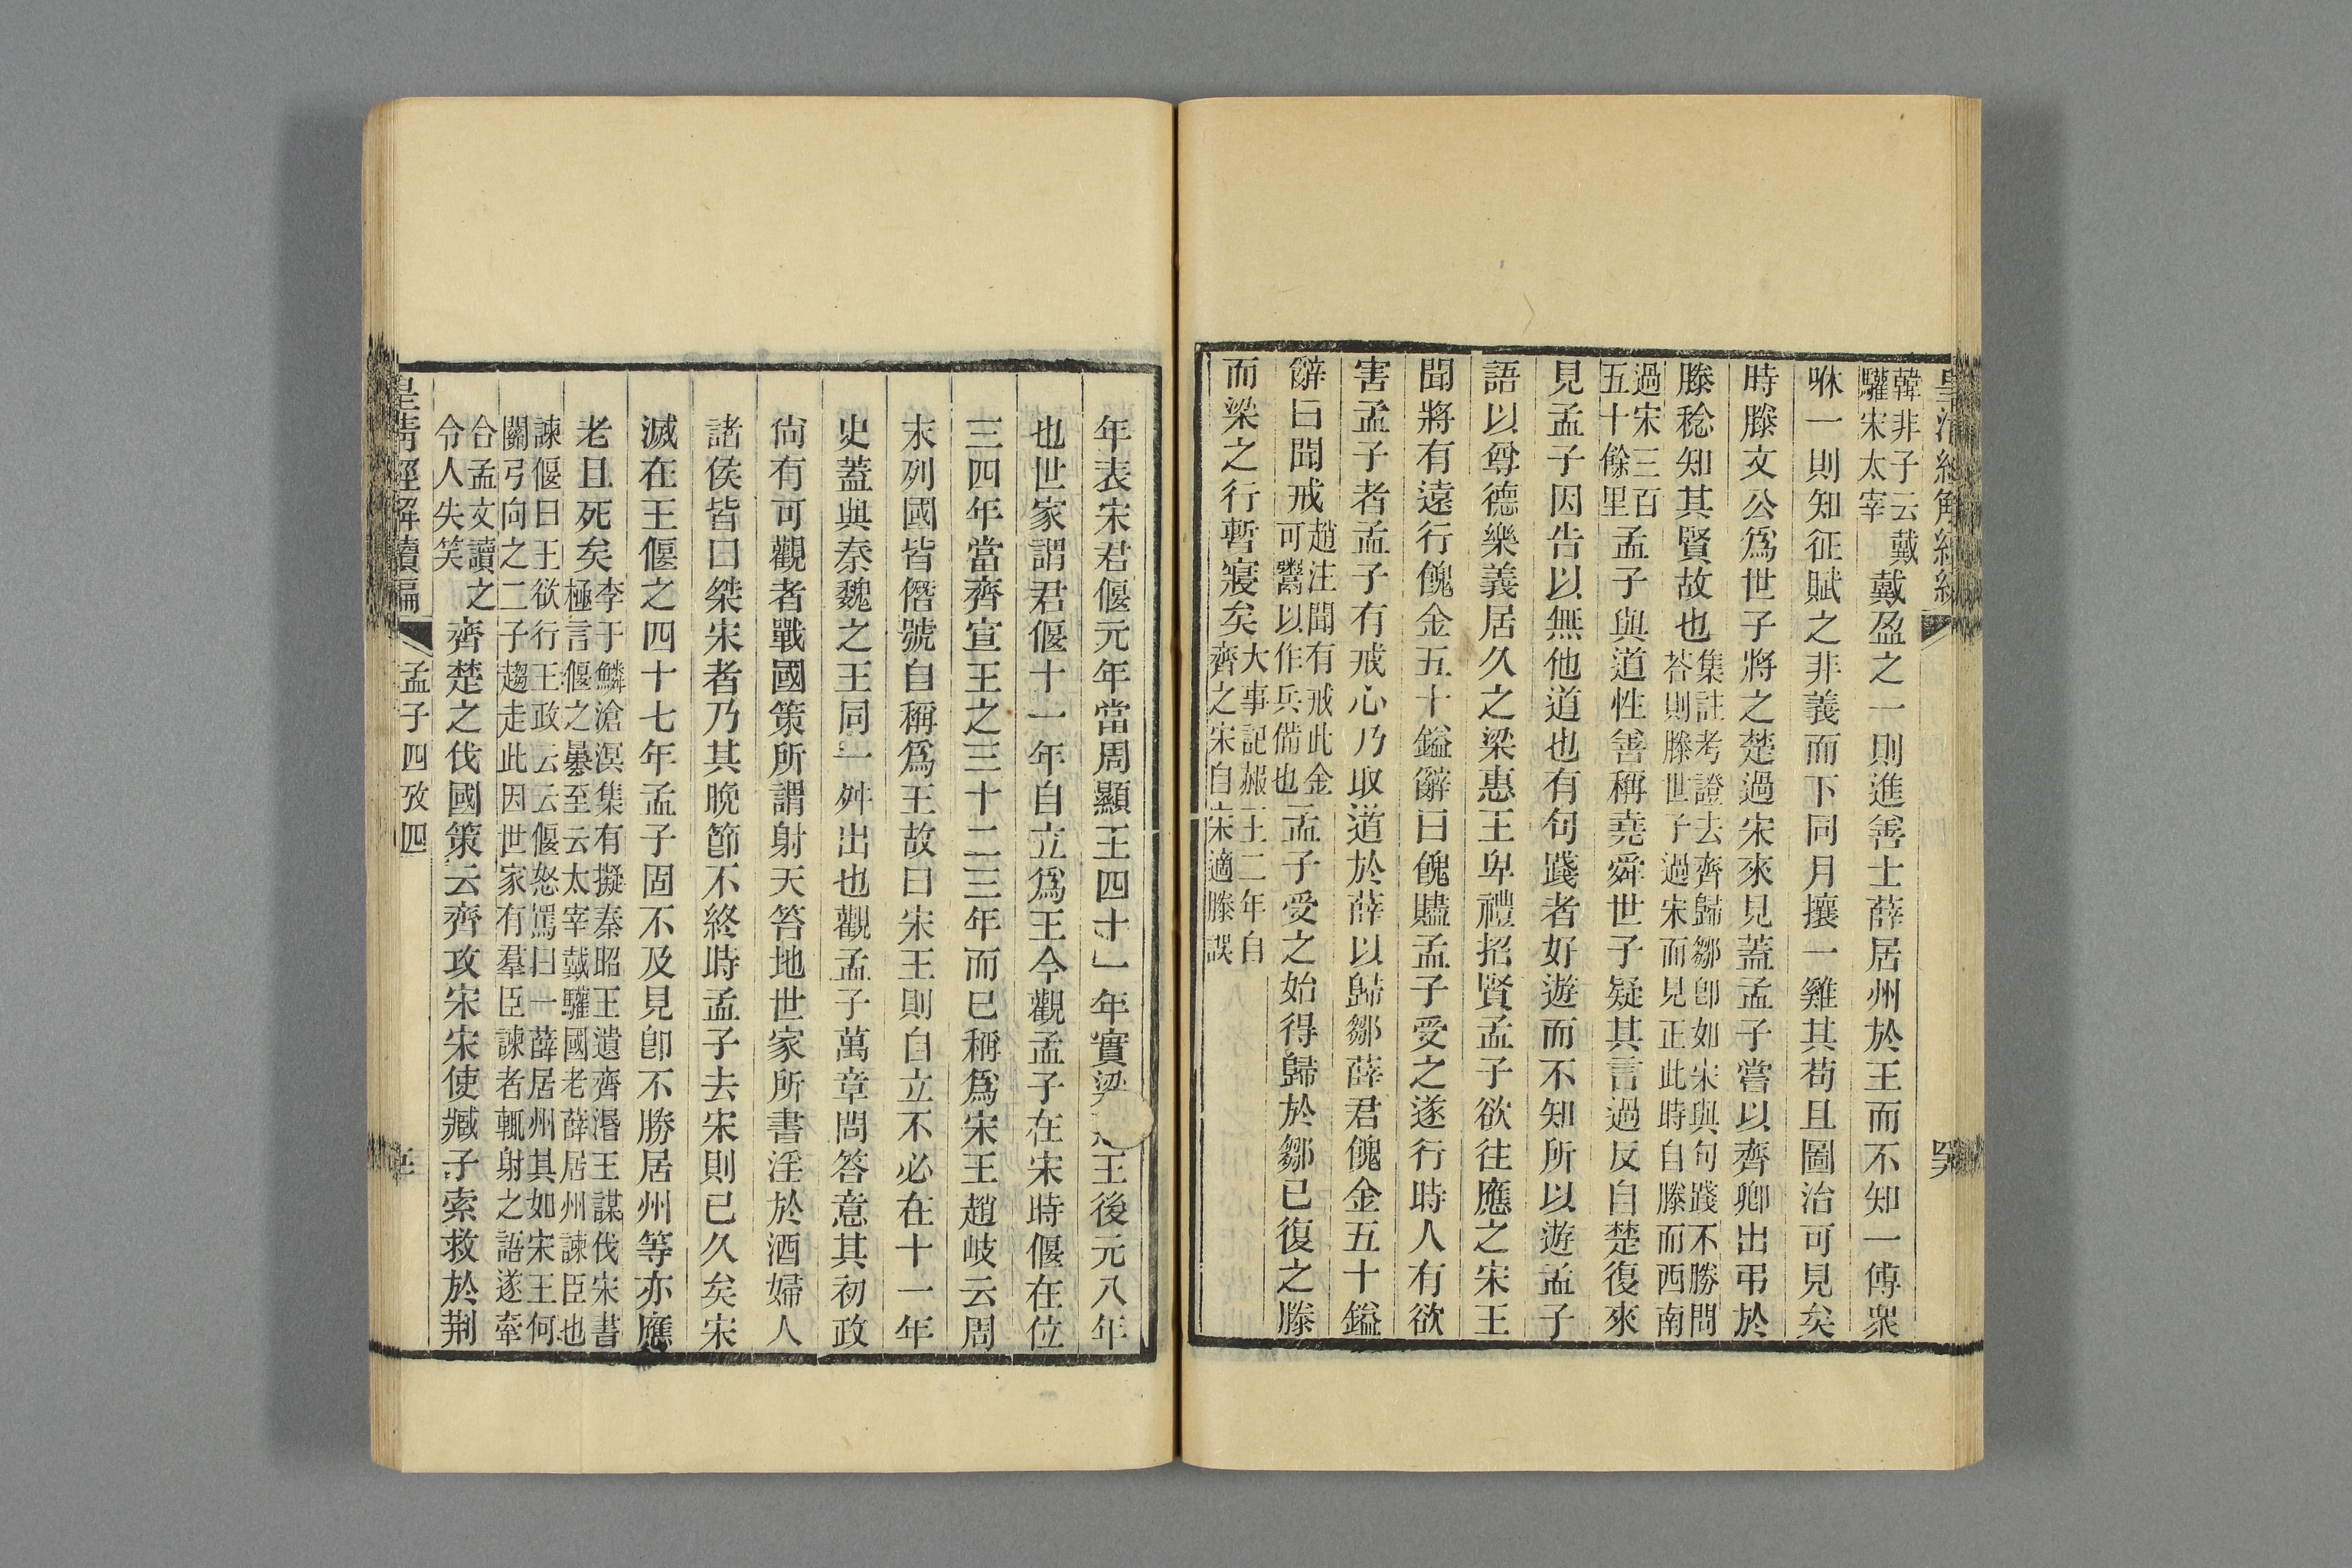 韓非子云戴
驩宋太宰
戴盈之一則進善士薛居州於王而不知一傅衆
咻一則知征賦之非義而下同月攘一雞其苟且圖治可見矣
時滕文公爲世子將之楚過宋來見蓋孟子嘗以齊卿出弔於
滕稔知其賢故也
集註考證去齊歸鄒卽如宋與句踐不勝問
荅則滕世子過宋而見正此時自滕而西南
過宋三百
五十餘里
孟子與道性善稱堯舜世子疑其言過反自楚復來
見孟子因告以無他道也有句踐者好遊而不知所以遊孟子
語以尊德樂義居久之梁惠王卑禮招賢孟子欲往應之宋王
聞將有遠行餽金五十鎰辭曰餽贐孟子受之遂行時人有欲
害孟子者孟子有戒心乃取道於薛以歸鄒薛君餽金五十鎰
辭曰聞戒
趙注聞有戒此金
可鬻以作兵備也
孟子受之始得歸於鄒已復之滕
而梁之行暫寢矣
大事記赧王二年自
齊之宋自宋適滕誤
年表宋君偃元年當周顯王四十一年實梁王後元八年
也世家謂君偃十一年自立爲王今觀孟子在宋時偃在位
三四年當齊宣王之三十二三年而已稱爲宋王趙岐云周
末列國皆僭號自稱爲王故曰宋王則自立不必在十一年
史蓋與秦魏之王同一舛出也觀孟子萬章問答意其初政
尙有可觀者戰國策所謂射天笞地世家所書淫於酒婦人
諸侯皆曰桀宋者乃其晚節不終時孟子去宋則已久矣宋
滅在王偃之四十七年孟子固不及見卽不勝居州等亦應
老且死矣
李于鱗滄溟集有擬秦昭王遺齊湣王謀伐宋書
極言偃之暴至云太宰戴驩國老薛居州諫臣也
諫偃曰王欲行王政云云偃怒罵曰一薛居州其如宋王何
關弓向之二子趨走此因世家有羣臣諫者輒射之語遂牽
合孟文讀之
令人失笑
齊楚之伐國策云齊攻宋宋使臧子索救於荆
皇清經解續編
孟子四攷四